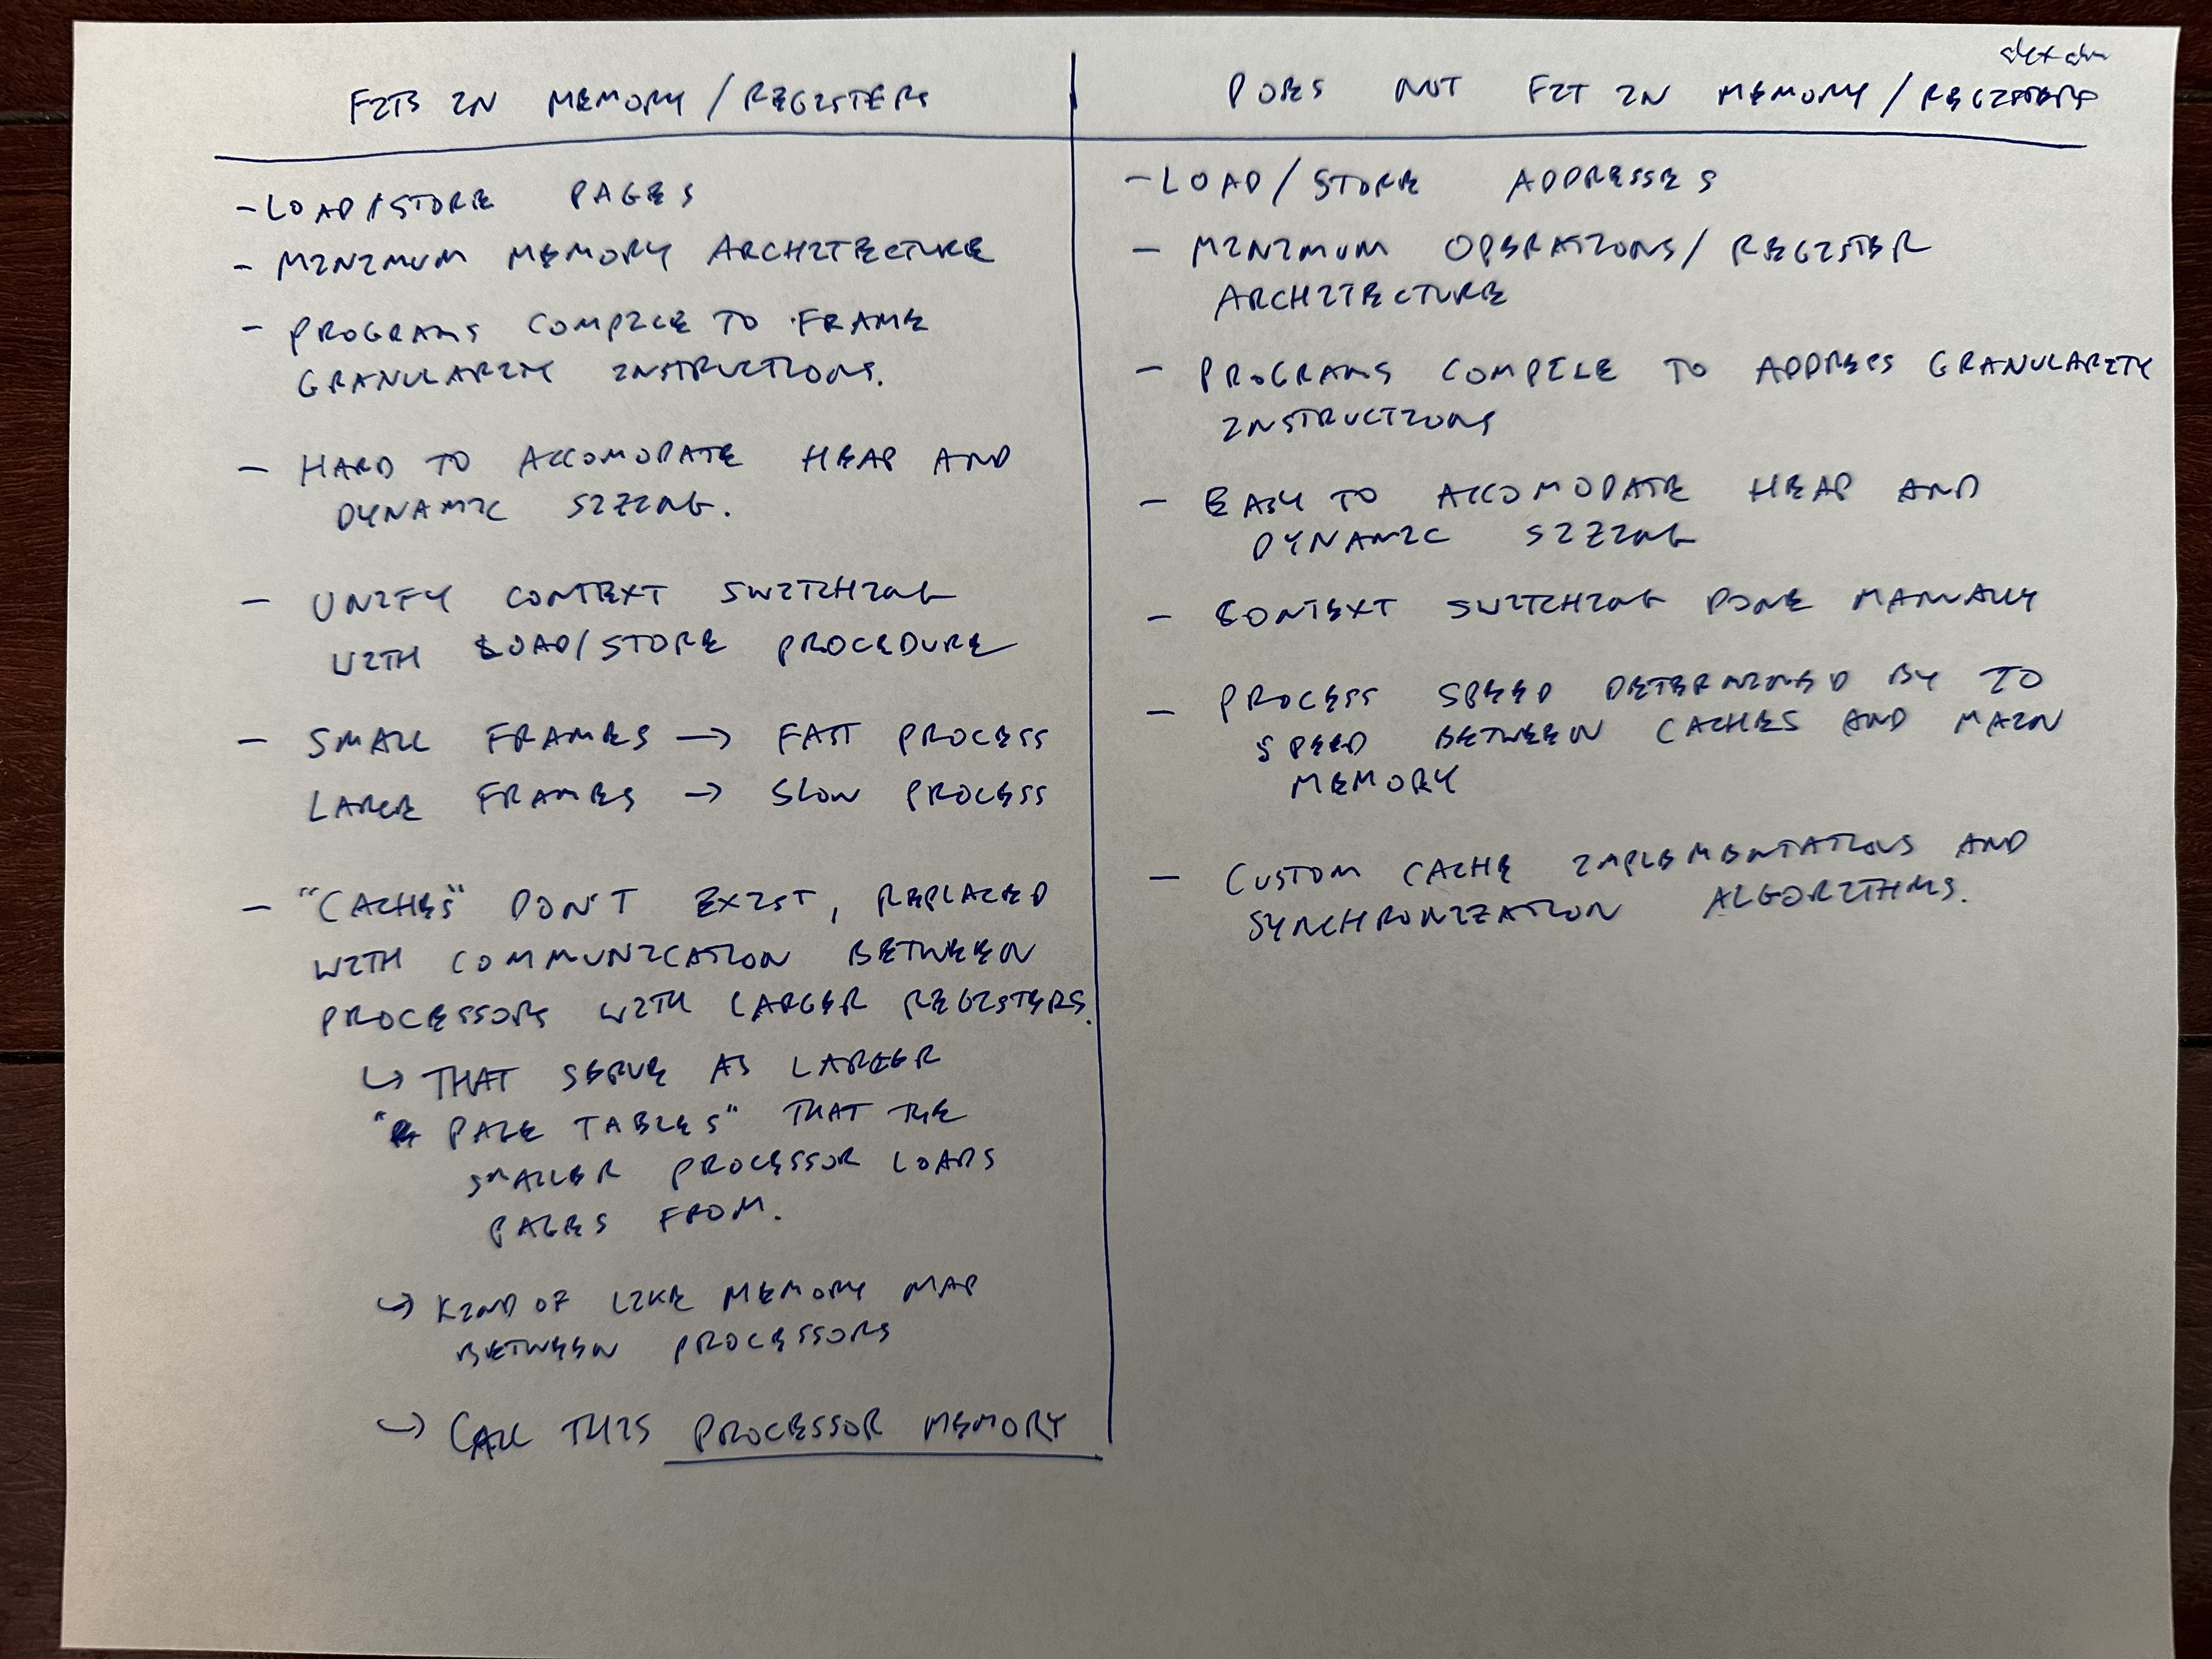 FITS IN MEMORY/REGISTERS
- LOAD/STORE PAGES
- MINIMUM MEMORY ARCHITECTURE
- PROGRAMS COMPILE TO FRAME
GRANULARITY INSTRUCTIONS.
- HARD TO ACCOMODATE HEAP AND
DYNAMIC SIZING.
- UNIFY CONTEXT SWITCHING
WITH LOAD/STORE PROCEDURE
- SMALL FRAMES → FAST PROCESS
LARGE FRAMES → SLOW PROCESS
- "CACHES" DON'T EXIST, REPLACED
WITH COMMUNICATION BETWEEN
PROCESSORS WITH LARGER REGISTERS.
↳ THAT SERVE AS LARGER
"PAGE TABLES" THAT THE
SMALLER PROCESSOR LOADS
PAGES FROM.
↳ KIND OF LIKE MEMORY MAP
BETWEEN PROCESSORS
↳ CALL THIS PROCESSOR MEMORY
DOES NOT FIT IN MEMORY/REGISTERS
- LOAD/STORE ADDRESSES
- MINIMUM OPERATIONS/REGISTER
ARCHITECTURE
- PROGRAMS COMPILE TO ADDRESS GRANULARITY
INSTRUCTIONS
- EASY TO ACCOMODATE HEAP AND
DYNAMIC SIZING
- CONTEXT SWITCHING DONE MANUALLY
- PROCESS SPEED DETERMINED BY IO
SPEED BETWEEN CACHES AND MAIN
MEMORY
- CUSTOM CACHE IMPLEMENTATIONS AND
SYNCHRONIZATION ALGORITHMS.